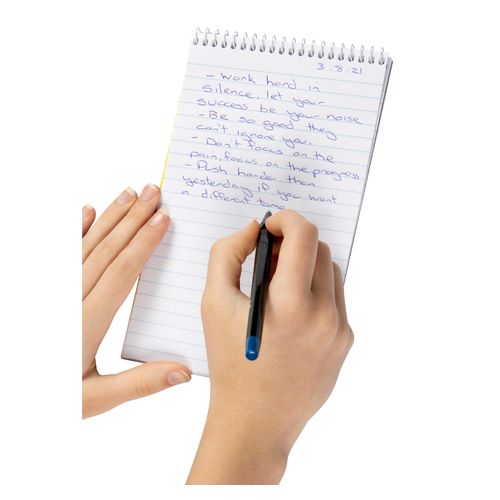 3/8/21.
- Work hard in
silence, let your
success be your noise
- Be so good they
can't ignore you.
- Don't focus on the
pain, focus on the progress
- Push harder than
yesterday if you want
a different